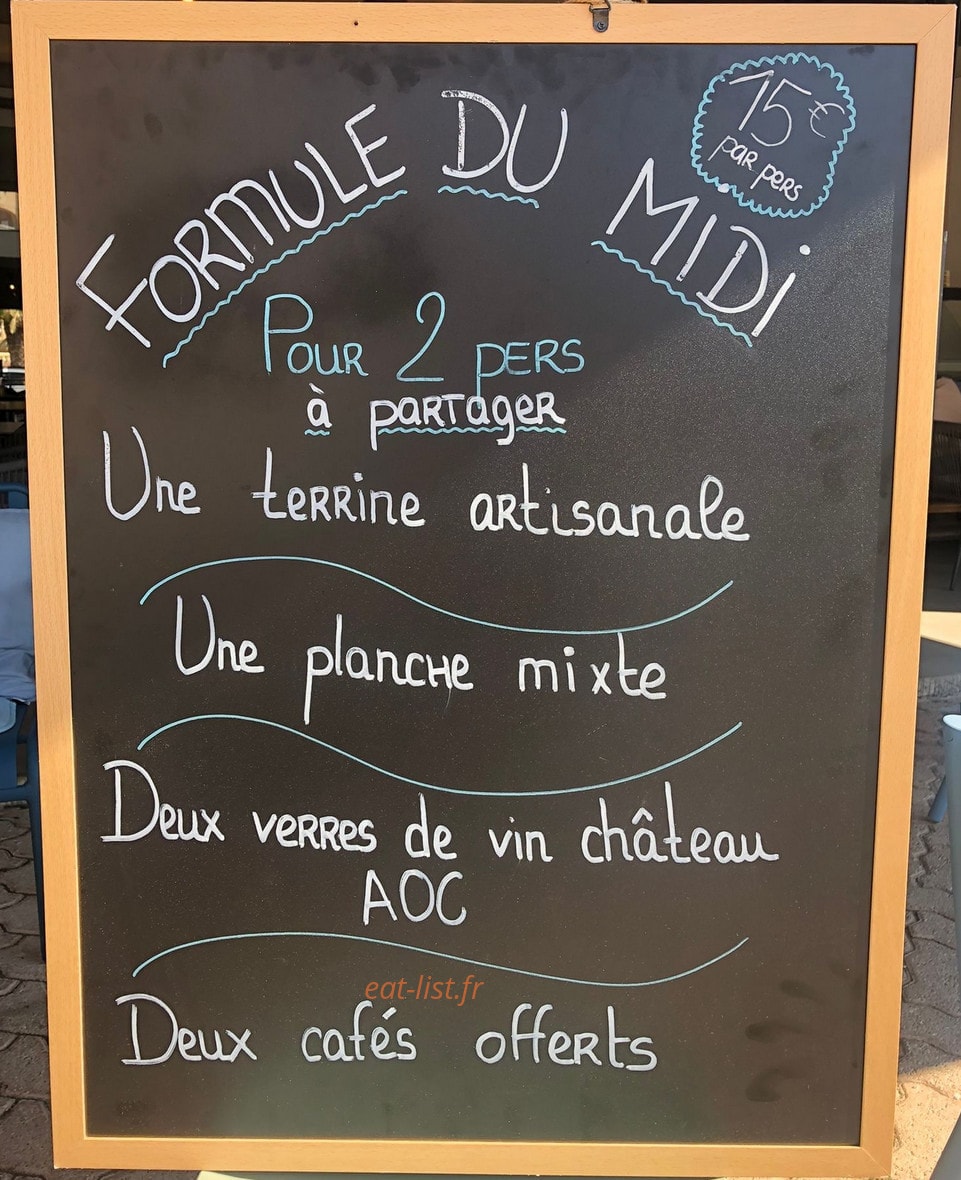 FORMULE DU MIDi
15€
par pers
Pour 2 pers
à partager
Une terrine artisanale
Une planche mixte
Deux verres de vin château
AOC
eat-list.fr
Deux cafés offerts